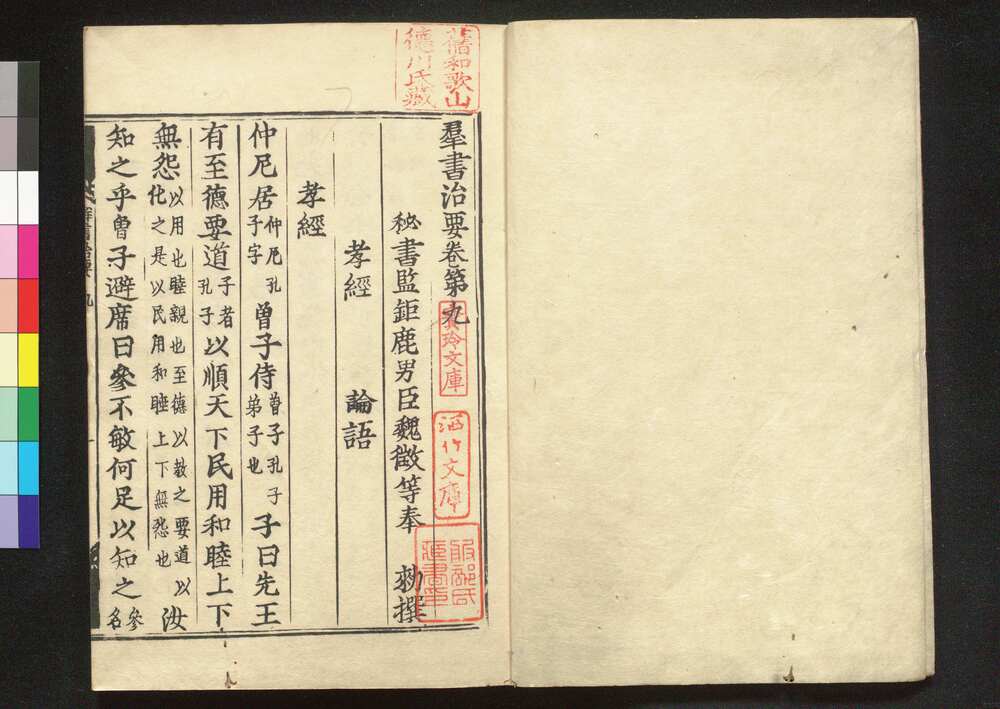 舊和歌山
德川氏藏
羣書治要卷第九
寶玲文庫
洒竹文庫
秘書監鉅鹿男臣魏徵等奉 勑撰
孝經 論語
孝經
仲尼居仲尼孔子字曾子侍曾子孔子弟子也子曰先王
有至德要道子者孔子以順天下民用和睦上下
無怨以用也睦親也至德以教之要道以化之是以民用和睦上下無怨也汝
知之乎曾子避席曰參不敏何足以知之參名